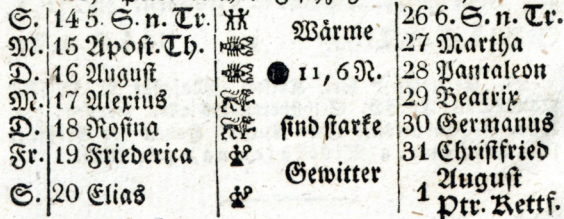 S. 14 5. S. n. Tr. Wärme 26 6. S. n. Tr.
M. 15 Apost. Th. 27 Martha
D. 16 August ● 11, 6 N. 28 Pantaleon
M. 17 Alexius 29 Beatrix
D. 18 Rosina sind starke 30 Germanus
Fr. 19 Friederica Gewitter 31 Christfried
S. 20 Elias 1 August
Ptr. Kettf.